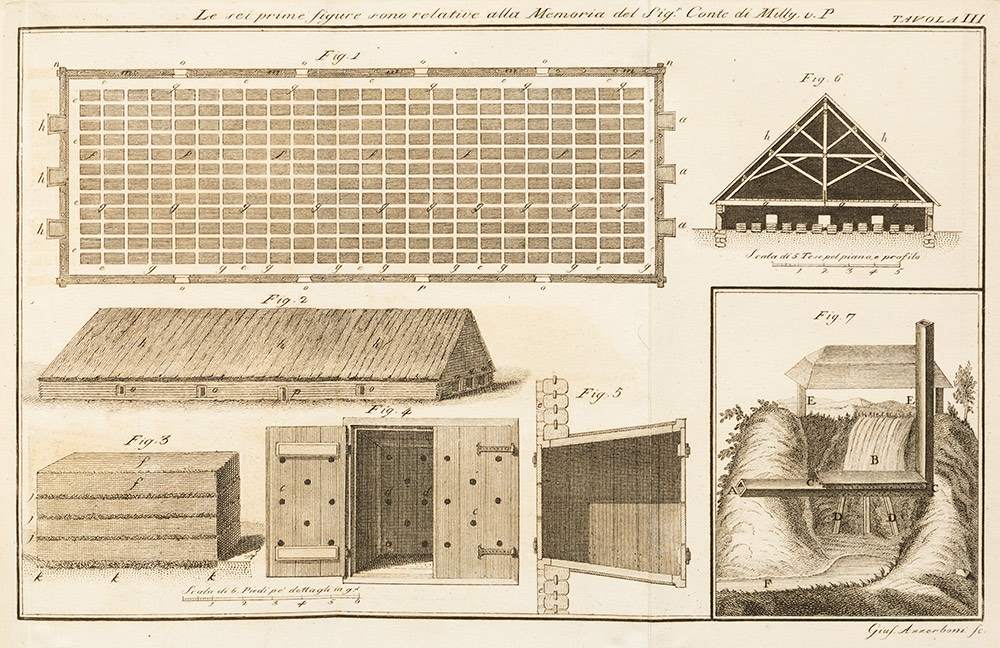 Le sei prime figure sono relative alla Memoria del Sig.r Conte di Milly. v. P
TAVOLA III
Fig. 1
n o o o o n
m m m m
c c c c
g g g g g
h a
h a
h a
f f f f f f
g g g g g g g g g
e g g e g e g e g e g
o o p o
Fig. 6
h h
g g g
Scala di 5. Tese pel piano, e profilo
1 2 3 4 5
Fig. 2
h h h
o o p o
Fig. 3
f
f
k k k
Fig. 4
c d d c
c
Scala di 6. Piedi pe' dettagli in g.de
1 2 3 4 5 6
Fig. 5
Fig. 7
E E
B
A C C
D D
F
Gius. Azzerboni sc.